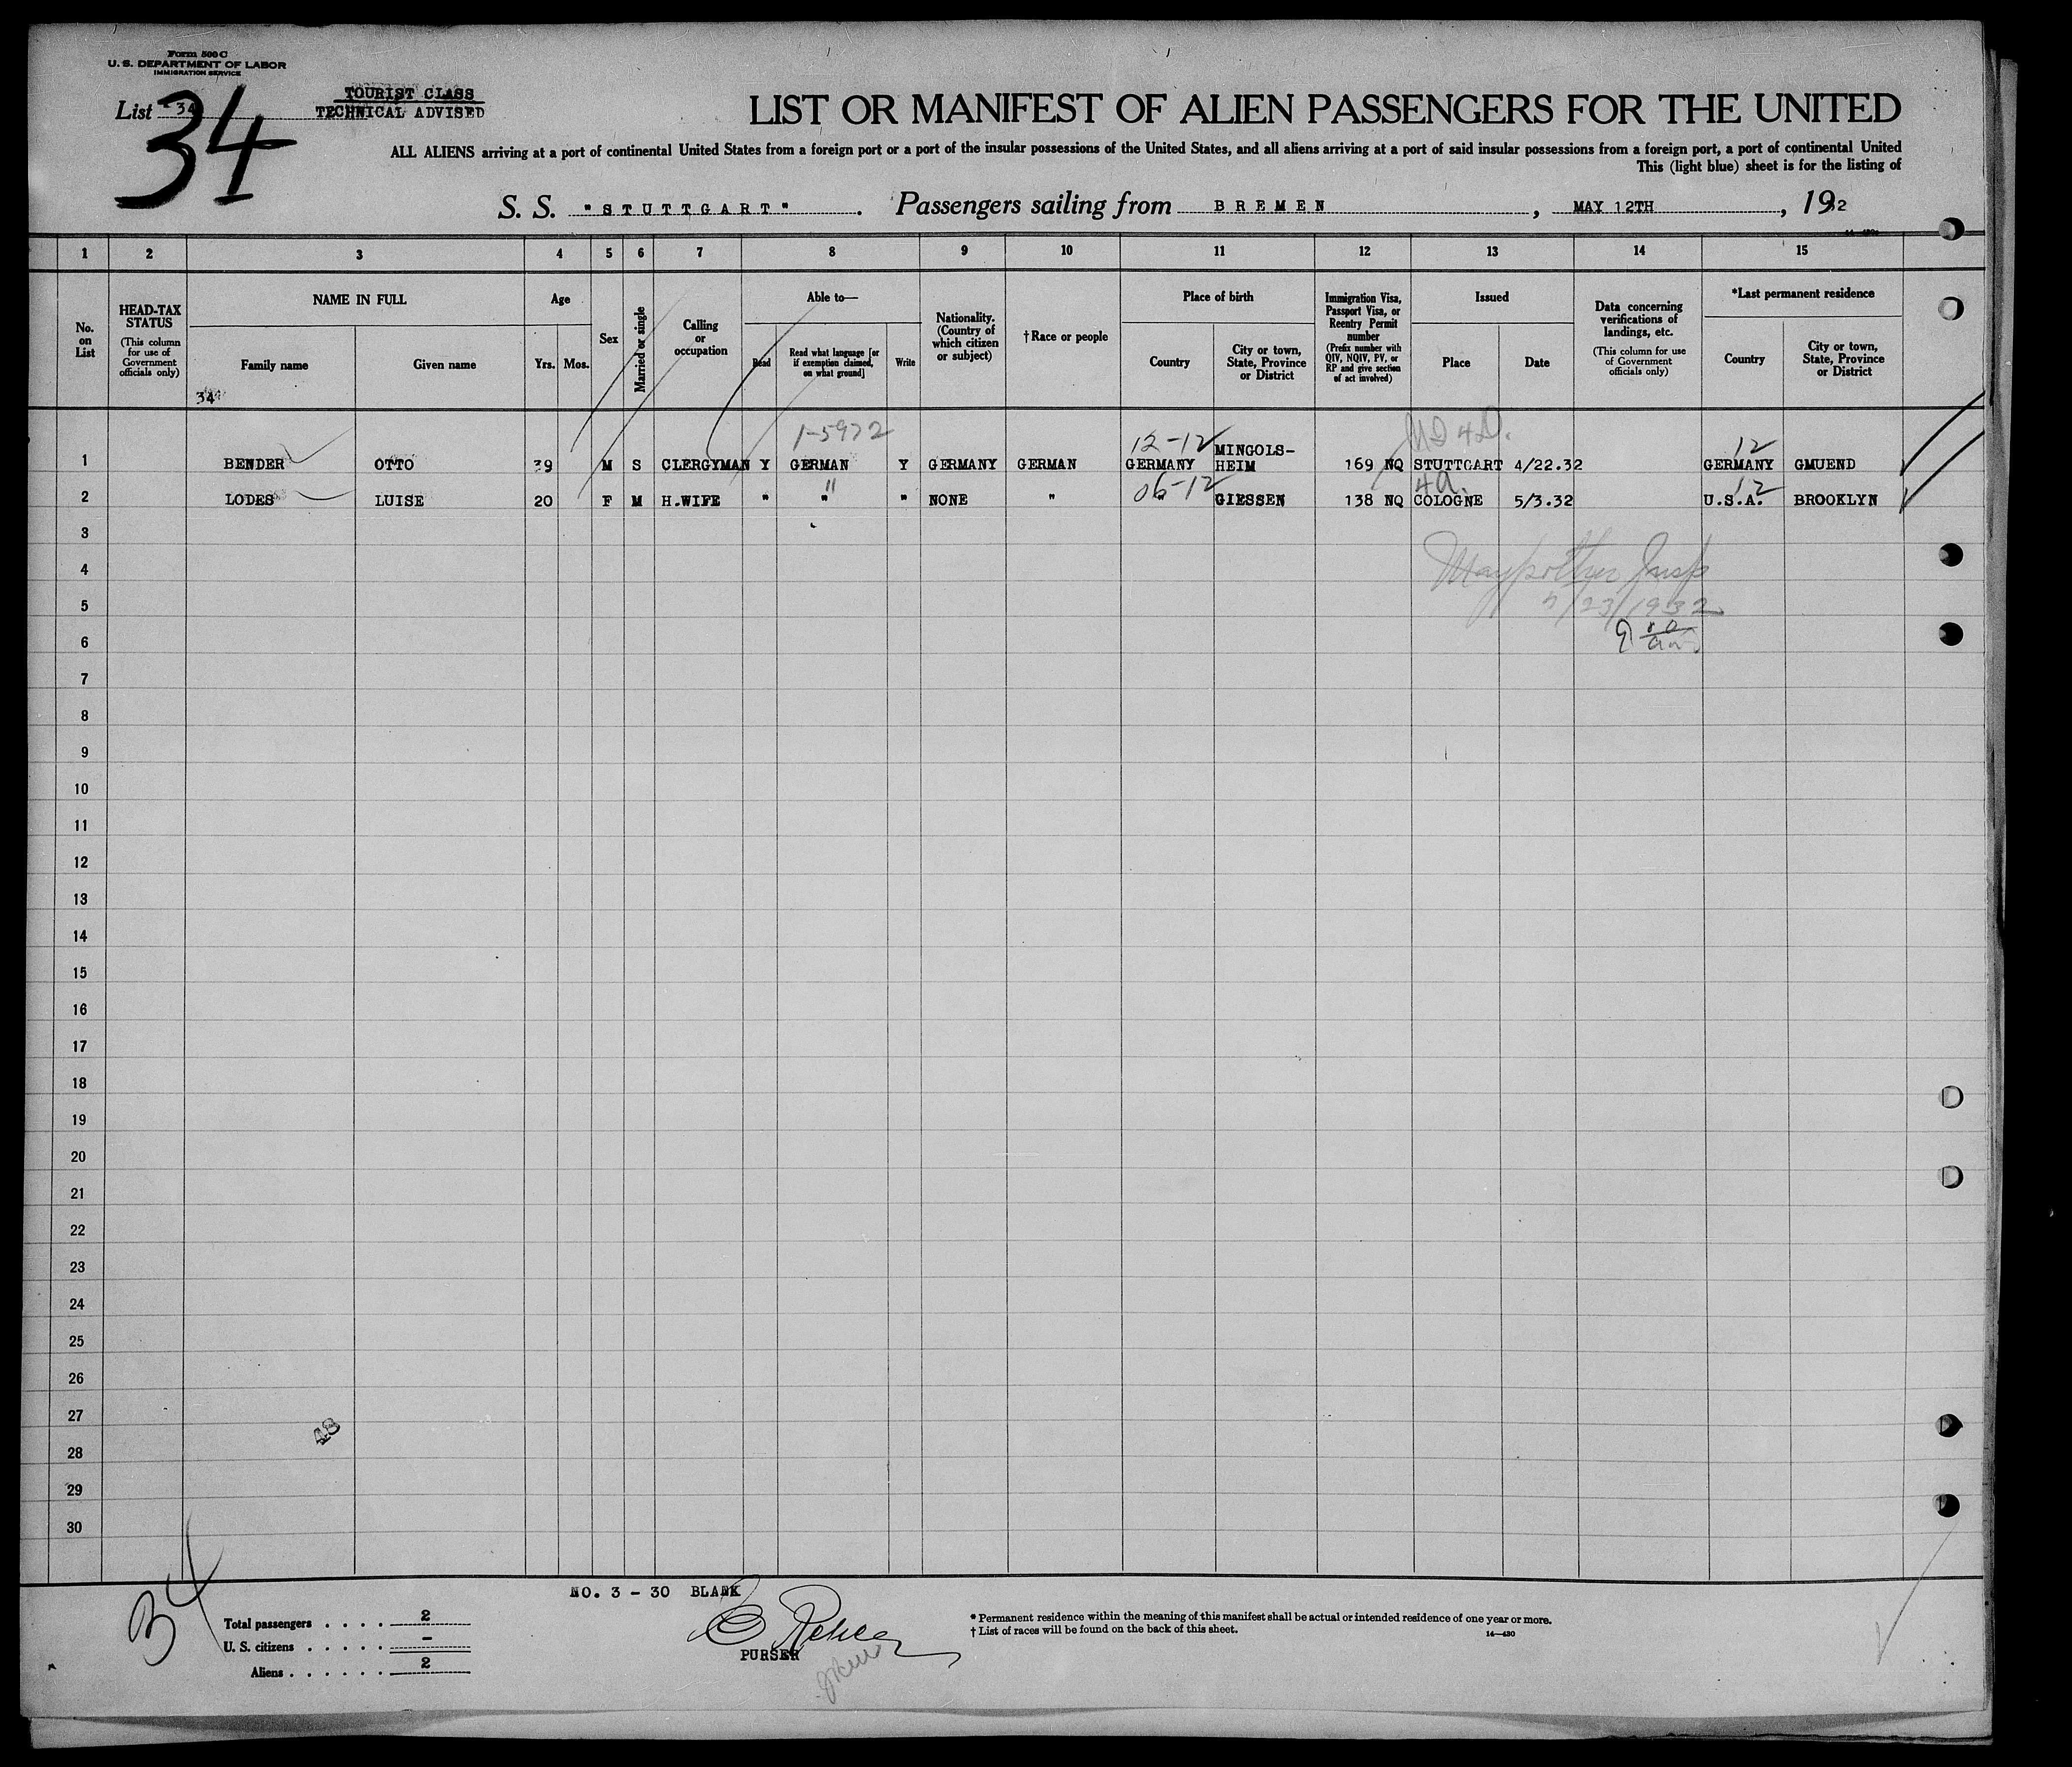 Form 500 C
U. S. DEPARTMENT OF LABOR
IMMIGRATION SERVICE
List 34
34
TOURIST CLASS
TECHNICAL ADVISED
LIST OR MANIFEST OF ALIEN PASSENGERS FOR THE UNITED
ALL ALIENS arriving at a port of continental United States from a foreign port or a port of the insular possessions of the United States, and all aliens arriving at a port of said insular possessions from a foreign port, a port of continental United
This (light blue) sheet is for the listing of
S. S. "STUTTGART". Passengers sailing from BREMEN, MAY 12TH, 1932
1 2 3 4 5 6 7 8 9 10 11 12 13 14 15
No. on List
HEAD-TAX STATUS
(This column for use of Government officials only)
NAME IN FULL
Family name
Given name
34
Age
Yrs. Mos.
Sex
Married or single
Calling or occupation
Able to—
Read
Read what language [or if exemption claimed, on what ground]
Write
Nationality. (Country of which citizen or subject)
† Race or people
Place of birth
Country
City or town, State, Province or District
Immigration Visa, Passport Visa, or Reentry Permit number
(Prefix number with QIV, NQIV, PV, or RP and give section of act involved)
Issued
Place
Date
Data concerning verifications of landings, etc.
(This column for use of Government officials only)
*Last permanent residence
Country
City or town, State, Province or District
1-5972 12-12 12
1 BENDER OTTO 39 M S CLERGYMAN Y GERMAN Y GERMANY GERMAN GERMANY MINGOLS-HEIM 169 NQ STUTTGART 4/22.32 GERMANY GMUEND
06-12 4a. 12
2 LODES LUISE 20 F M H.WIFE " " " NONE " " GIESSEN 138 NQ COLOGNE 5/3.32 U.S.A. BROOKLYN
3
4
5
5/23/1932
6
7
8
9
10
11
12
13
14
15
16
17
18
19
20
21
22
23
24
25
26
27
48
28
29
30
34
NO. 3 - 30 BLANK
Total passengers . . . . 2
U. S. citizens . . . . . -
Aliens . . . . . . 2
PURSER
* Permanent residence within the meaning of this manifest shall be actual or intended residence of one year or more.
† List of races will be found on the back of this sheet.
14—430